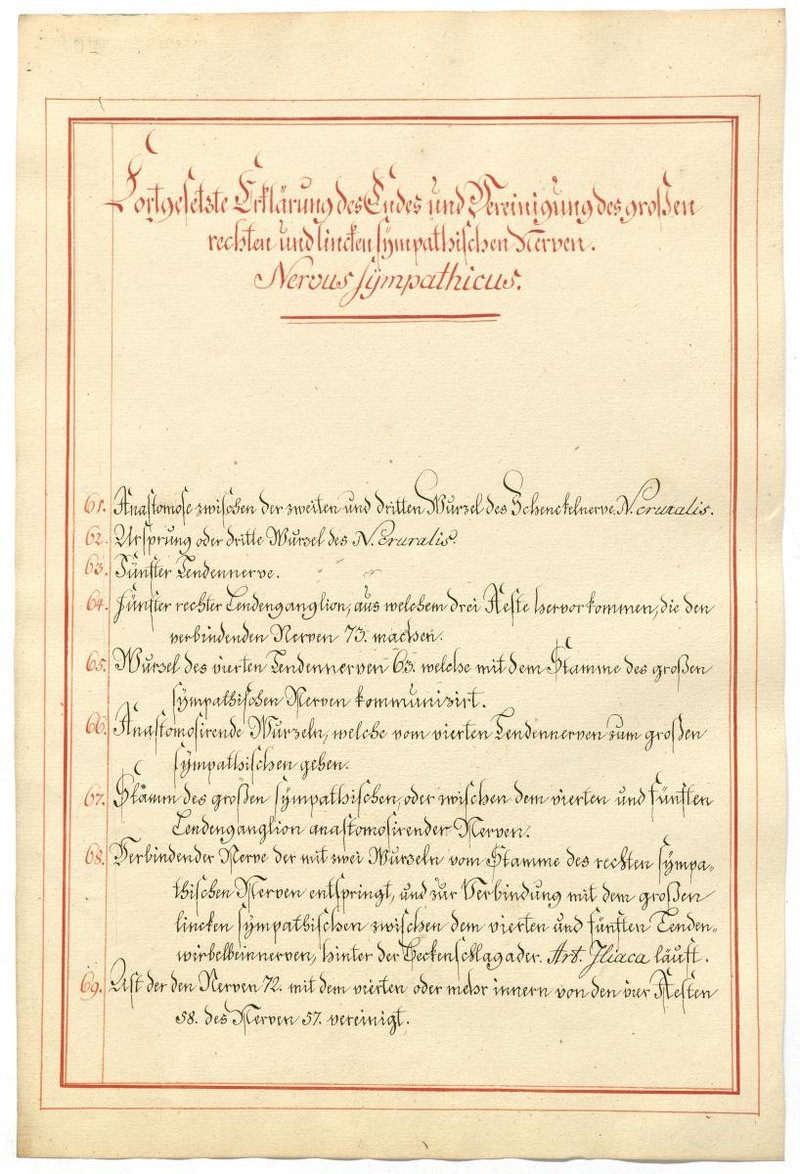 Fortgesetzte Erklärung des Endes und Vereinigung des großen
rechten und lincken sympathischen Nerven.
Nervus sÿmpathicus.
61. Anastomose zwischen der zweiten und dritten Wurzel des Schenckelnerve. N. cruralis.
62. Ursprung oder dritte Wurzel des N. cruralis.
63. Fünfter Lendennerve.
64. fünfter rechter Lendenganglion, aus welchem drei Aeste hervorkommen, die den
verbindenden Nerven 73. machen.
65. Wurzel des vierten Lendennerven 63. welche mit dem Stamme des großen
sympathischen Nerven kommunizirt.
66. Anastomosirende Wurzeln, welche vom vierten Lendennerven zum großen
sympathischen gehen.
67. Stamm des großen sympathischen, oder zwischen dem vierten und fünften
Lendenganglion anastomosirender Nerven.
68. Verbindender Nerve der mit zwei Wurzeln vom Stamme des rechten sympa-
thischen Nerven entspringt, und zur Verbindung mit dem großen
lincken sympathischen zwischen dem vierten und fünften Lenden-
wirbelbeinnerven, hinter der Beckenschlagader. Art. Iliaca läuft.
69. Ast der den Nerven 72. mit dem vierten oder mehr innern von den vier Aesten
58. des Nerven 57. vereinigt.